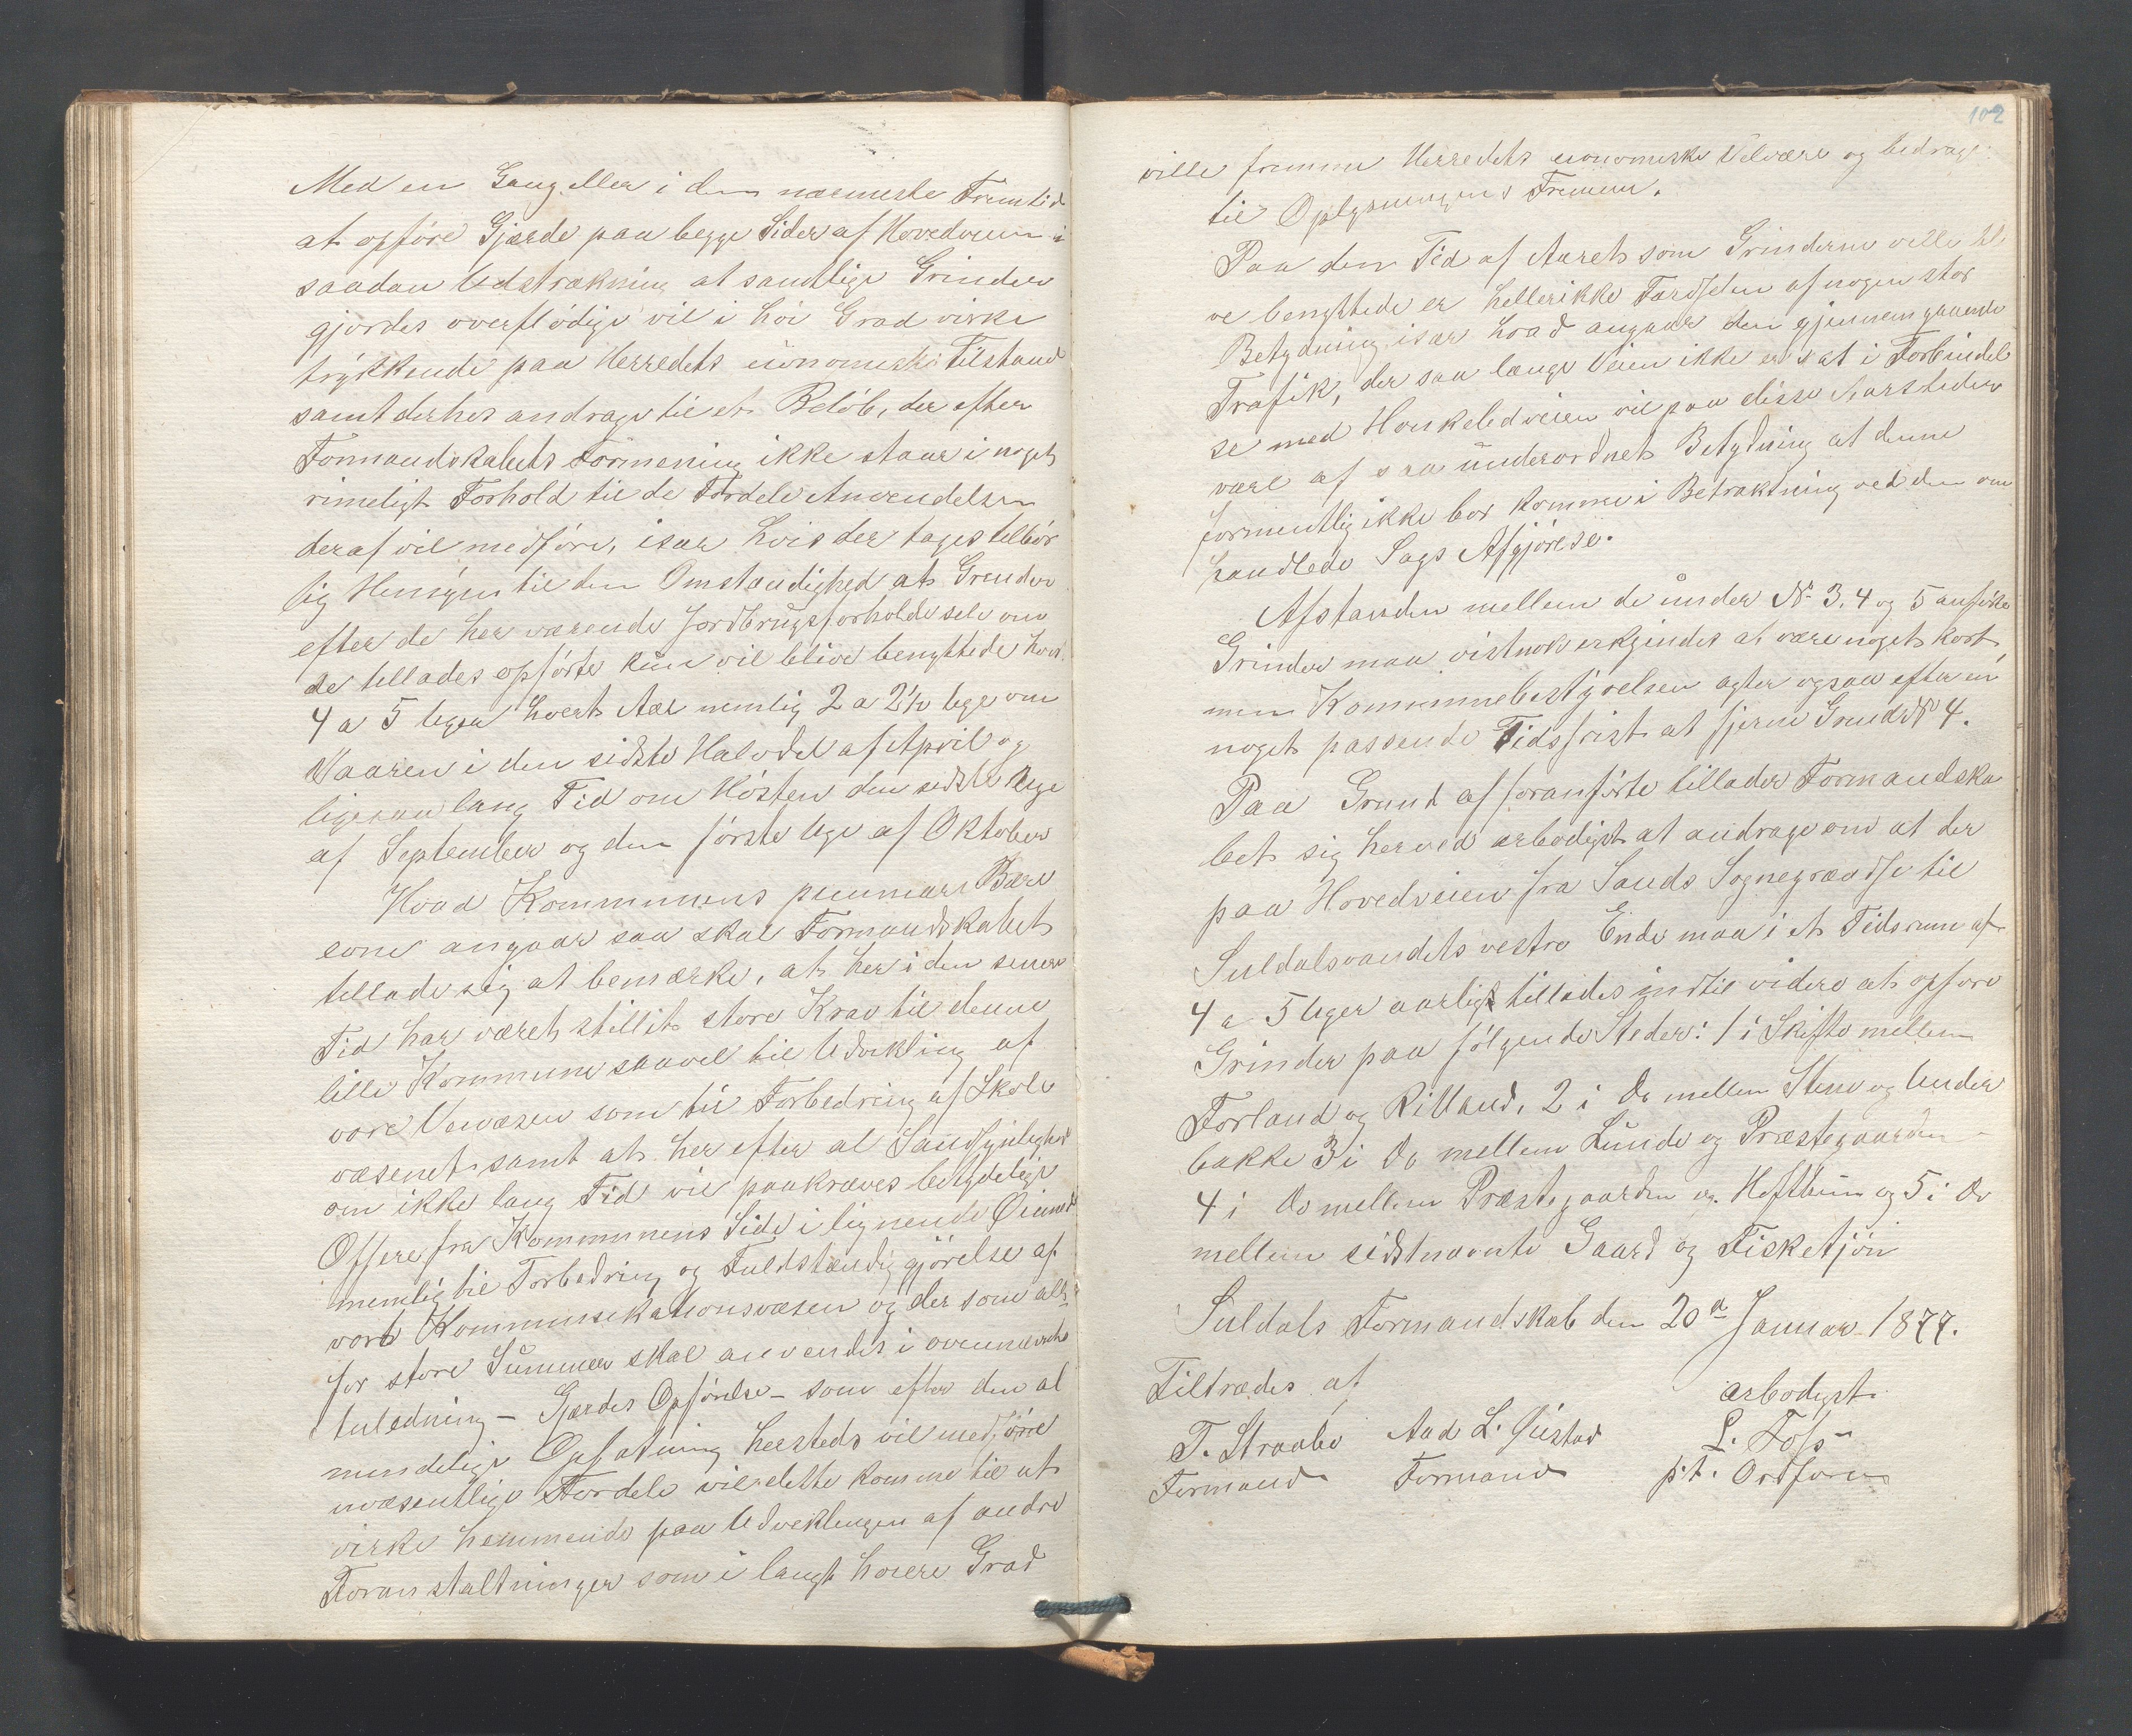 Med en Gang eller i den nærmeste Fremtid
at opföre Gjærde paa begge Sider af Hovedveien i
saadan Udstrækning at samtlige Grinder
gjordes overflödige vil i höi Grad virke
trykkende paa Herredets economiske Tilstand
samt derhos andrage til et Belöb, der efter
Formandskabets Formening ikke staar i noget
rimeligt Forhold til de Fordele Anvendelsen
deraf vil medföre, især hvis der tages tilbör
lig Hensyn til den Omstændighed at Grinder
efter de her værende Jordbrugsforholde selv om
de tillades opförte kun vil blive benyttede hver
4 a 5 Uger hvert Aar nemlig 2 a 2½ Uge om
Vaaren i den sidste Halvdel af April og
ligesaa lang Tid om Hösten den sidste Uge
af September og den förste Uge af Oktober
Hvad Kommunens pecuniære Bære
evne angaar saa skal Formandskabet
tillade sig at bemærke, at her i den senere
Tid har været stillet store Krav til denne
lille Kommune saavel til Udvikling af
vore Veivæsen som til Forbedring af Skole
væsenet samt at her efter al Sandsynlighed
om ikke lang Tid vil paakræves betydelige
Offere fra Kommunens Side i lignende Öiemed
nemlig til Forbedring og Fuldstændiggjörelse af
vort Kommunikationsvæsen og der som alt
for store Summer skal anvendes i ovennævnte
Anledning – Gjærdes Opförelse – som efter den al
mindelige Opfatning hersteds vil medföre
uvæsentlige Fordele vil dette komme til at
virke hemmende paa Udviklingen af andre
Foranstaltninger som i langt höiere Grad
102
ville fremme Herredets economiske Velvære og bidrage
til Oplysningens Fremme.
Paa den Tid af Aaret som Grinderne ville bli
ve benyttede er hellerikke Færdselen af nogen stor
Betydning især hvad angaar den gjennemgaaende
Trafik, der saa længe Veien ikke er sat i Forbindel
se med Honkeledveien vil paa disse Aarstider
være af saa underordnet Betydning at denne
formentlig ikke bör komme i Betraktning ved den om
handlede Sags Afgjörelse.
Afstanden mellem de under № 3, 4 og 5 anförte
Grinder maa vistnok erkjendes at være noget kort,
men Kommunebestyrelsen agter ogsaa efter en
noget passende Tidsfrist at fjerne Grind № 4.
Paa Grund af foranförte tillader Formandska
bet sig herved ærbödigst at andrage om at der
paa Hovedveien fra Sands Sognegrændse til
Suldalsvandets vestre Ende maa i et Tidsrum af
4 a 5 Uger aarligt tillades indtil videre at opföre
Grinder paa fölgende Steder: 1 i Skifte mellem
Forland og Rilland, 2 i Do mellem Stene og Under
bakke 3 i Do mellem Lunde og Præstegaarden
4 i Do mellem Præstegaarden og Hofthun og 5 i Do
mellem sidstnævnte Gaard og Fisketjön
Suldals Formandskab den 20de Januar 1877.
Tiltrædes af
ærbödigst
T. Straabø Aad L. Gustad L. Foss
Formand Formand p.t. Ordförer